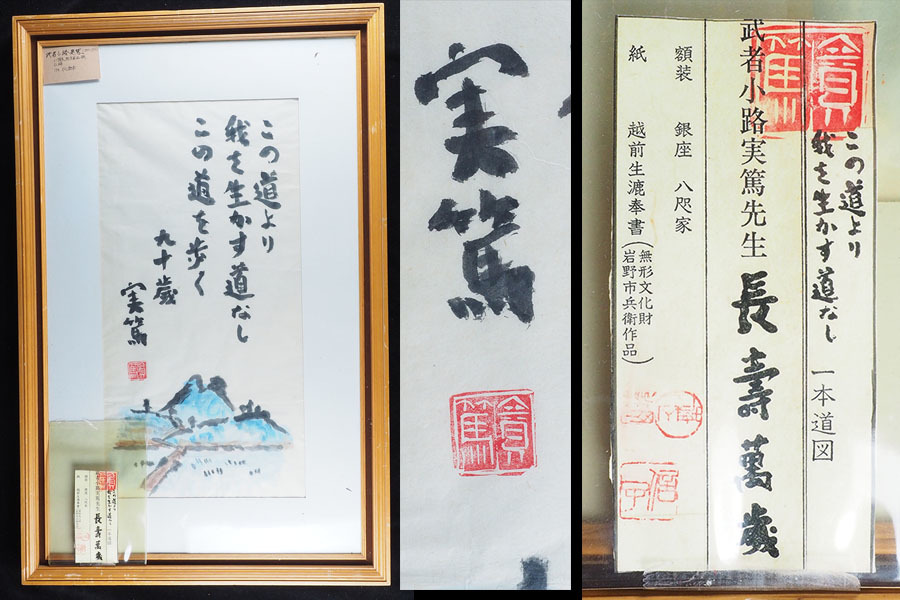 この道より
我を生かす道なし
この道を歩く
九十歳
実篤
実篤
實篤
この道より
我を生かす道なし 一本道図
武者小路実篤先生 長壽萬歳
額装 銀座 八咫家
紙 越前生漉奉書(無形文化財
岩野市兵衛作品)